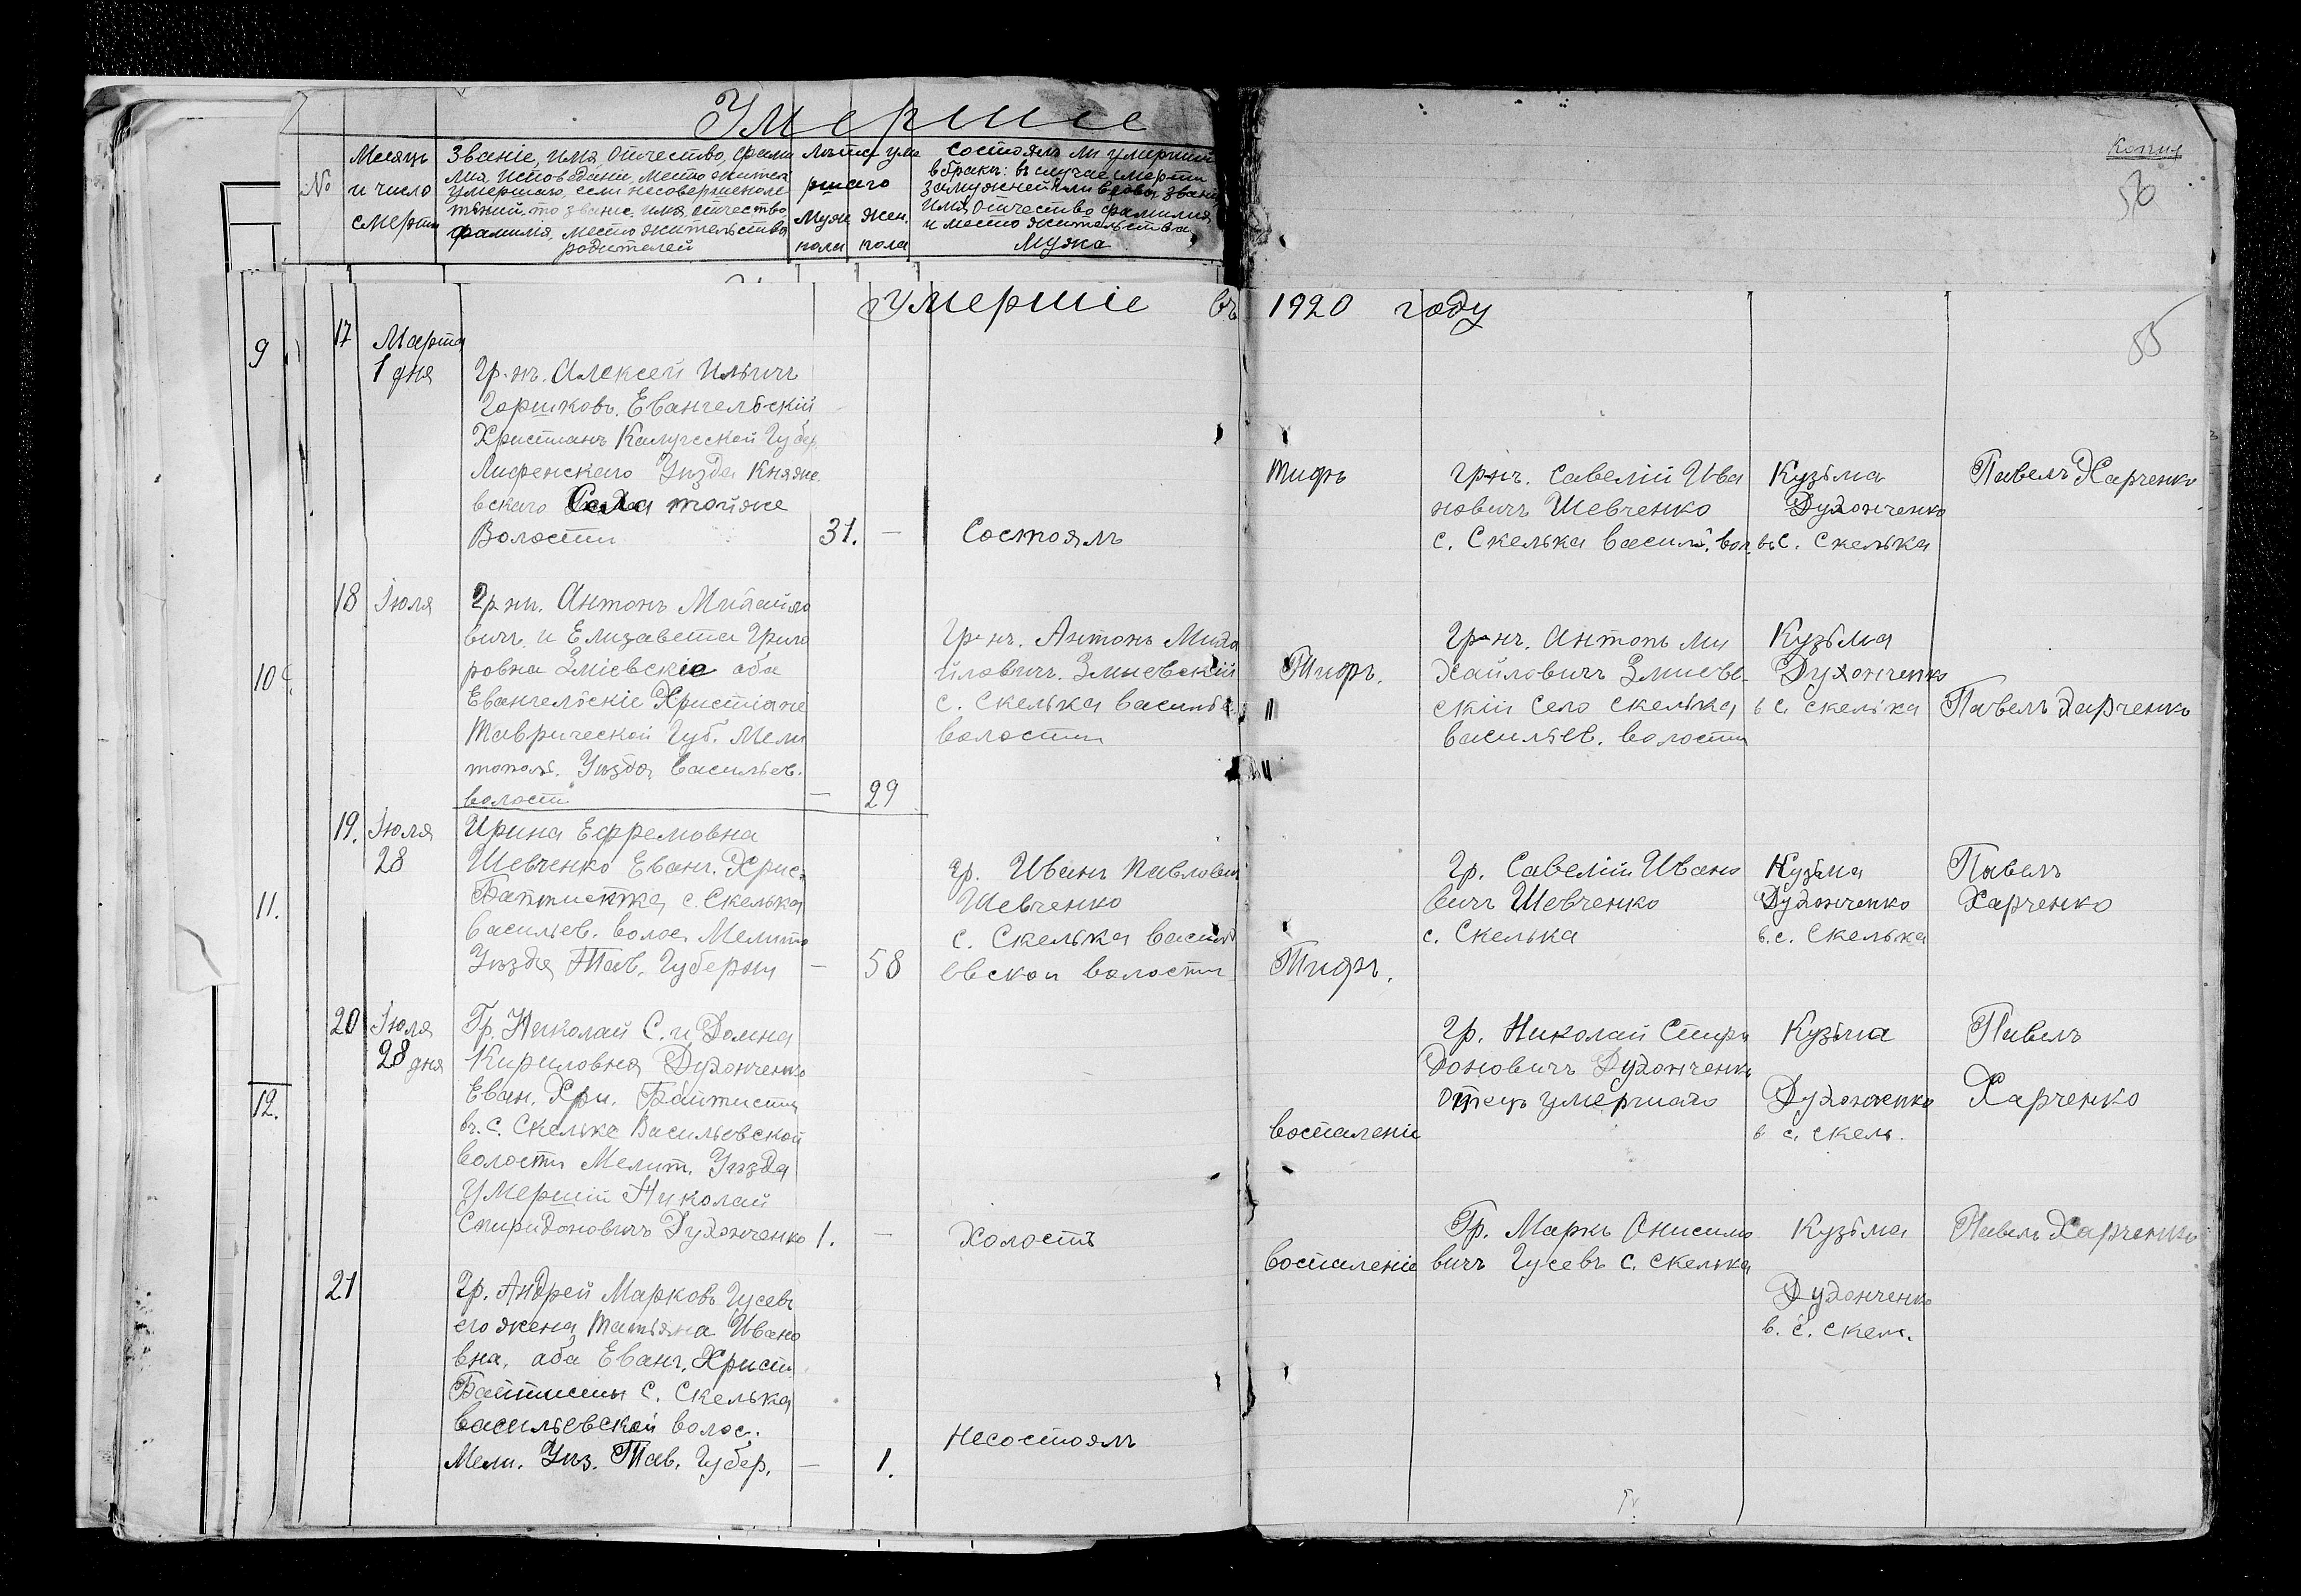 Умершіе
Копия
50
№
Месяцъ
и число
смерти
Званіе, имя, отчество, фами
лия, исповедани, место жител
умершаго, если несовершеноле
тний, то звание, имя, отчество,
фамилия, место жительства
родителей
Лѣта уме
ршаго
Муж жен.
пола пола
Состоялъ ли умерший
в бракѣ: въ случае смерти
замужней или вдовы, звание
имя, отчество, фамилия,
и место жительства
Мужа
Умершіе въ 1920 году
55
9
17
Марта
1 дня
Гр-нъ. Алексей Ильичъ
Горшковъ. Евангельскій
Христианъ Калужской Губер.
Лифенскаго Уѣзда Княже
вскаго Села тойже
Волости
31. —
Состоялъ
тифъ
Гр-нъ. Савелій Ива
новичъ Шевченко
с. Скелька Васильв. вол.
Кузьма
Духонченко
въ с. Скелька
Павелъ Харченко
10
18
Іюля
Гр-нъ. Антонъ Михайло
вичъ и Елизавета Григо
ровна Зміевскіе оба
Евангельскіе Христіане
Таврической Губ. Мели
топол. Уѣзда Васильев.
волости
— 29
Гр-нъ. Антонъ Миха
йловичъ. Змиевский
с. Скелька Васильев.
волости
Тифъ.
Гр-нъ. Антонъ Ми
хайловичъ Змиев-
скій село Скелька
Васильев. волости
Кузьма
Духонченко
в с. Скелька
Павелъ Харченко
11.
19.
Іюля
28
Ирина Ефремовна
Шевченко Еванг. Христ.
Баптистка с. Скелька
Васильев. волос. Мелито
Уѣзда Тав. Губерни
— 58
Гр. Иванъ Павлович
Шевченко
с. Скелька Василь
евской волости
Тифъ.
Гр. Савелій Ивано
вичъ Шевченко
с. Скелька
Кузьма
Духонченко
в. с. Скелька
Павелъ
Харченко
12.
20
Іюля
28 дня
Гр. Николай С. и Домна
Кириловна Духонченко
Еван. Хри. Баптисты
въ с. Скельке Васильевской
волости Мелит. Уѣзда
Умершій Николай
Спиридоновичъ Духонченко
1. —
Холостъ
воспаленіе
Гр. Николай Спири
доновичъ Духонченко
отецъ умершаго
Кузьма
Духонченко
в с. Скель.
Павелъ
Харченко
21
Гр. Андрей Марковъ Гусевъ
его жена Татьяна Ивано
вна, оба Еванг. Христ.
Баптисты с. Скелька
Васильевской волос.
Мели. Уѣз. Тав. Губер.
— 1.
Несостоялъ
воспаленіе
Гр. Маркъ Онисимо
вичъ Гусевъ с. Скелька
Кузьма
Духонченко
в. с. Скел.
Павелъ Харченко